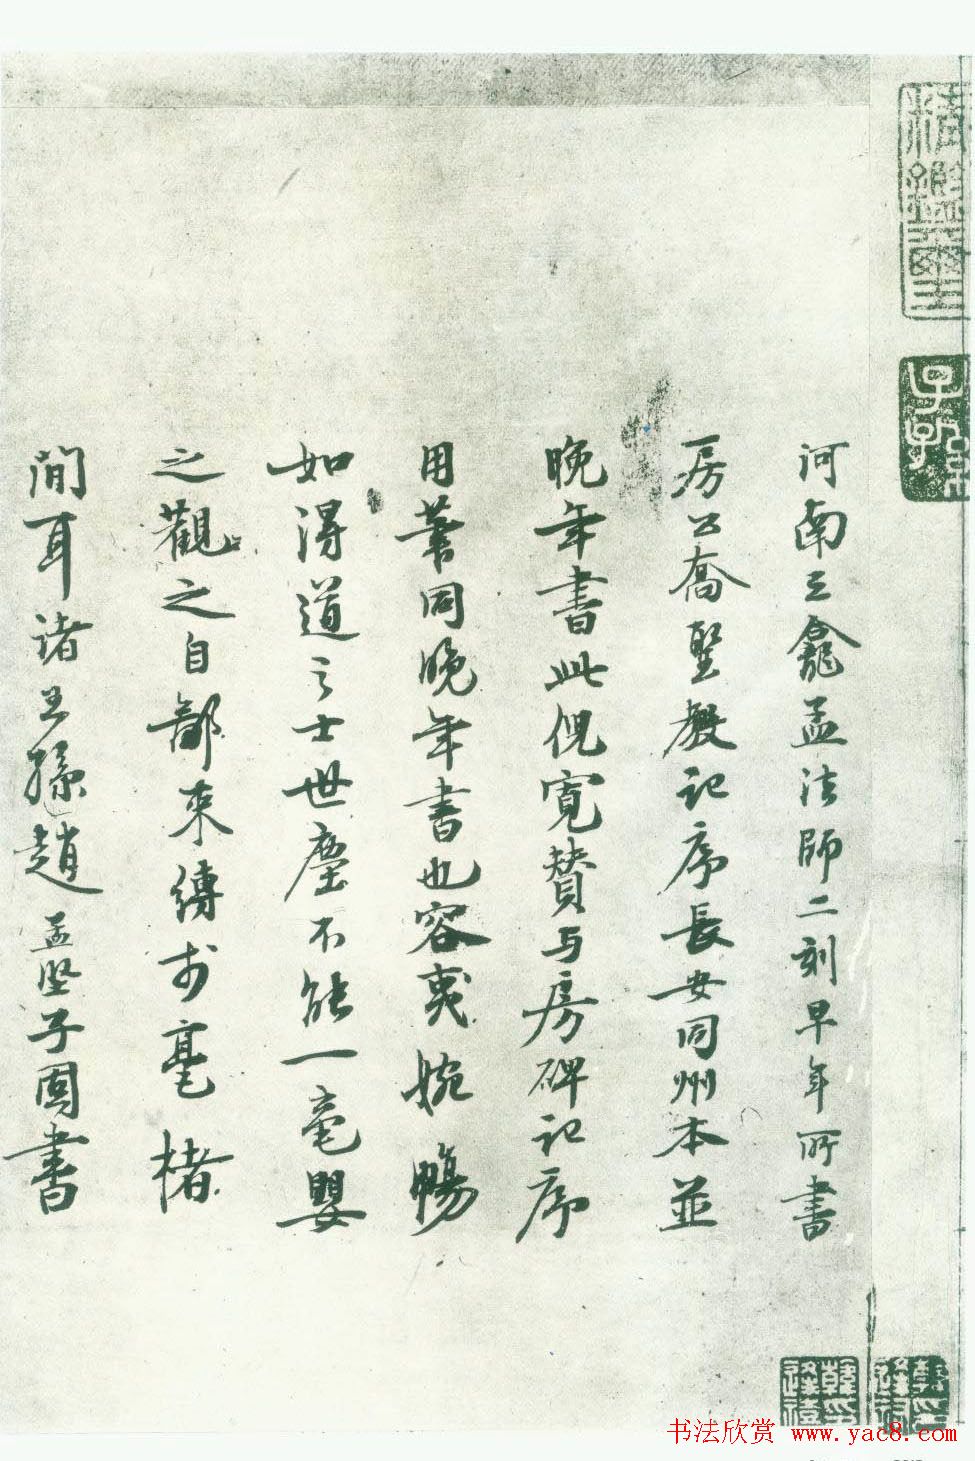 河南三龕孟法師二刻早年所書
房公喬聖教記序長安同州本並
晚年書此倪寬贊与房碑記序
用筆同晚年書也容夷婉暢
如得道之士世塵不能一毫嬰
之觀之自鄙來縛於毫楮
間耳諸王孫趙孟堅子固書
精鑑璽
子孫
書法欣赏 www.yac8.com